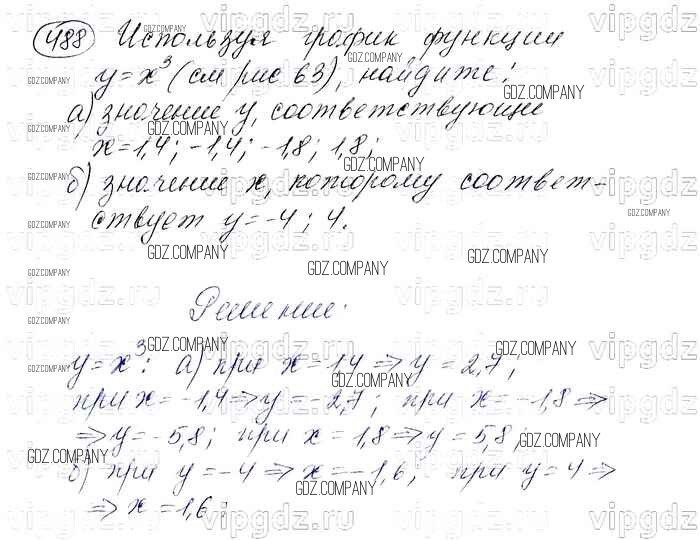 488 Используя график функции
y=x³ (см. рис 63), найдите:
а) значение y, соответствующие
x=1,4; -1,4; -1,8; 1,8;
б) значение x, которому соответ-
ствует y=-4; 4.
Решение:
y=x³: а) при x=1,4 ⇒ y=2,7;
при x=-1,4 ⇒ y=-2,7; при x=-1,8 ⇒
⇒ y=-5,8; при x=1,8 ⇒ y=5,8;
б) при y=-4 ⇒ x=-1,6; при y=4 ⇒
⇒ x=1,6;
GDZ.COMPANY
vipgdz